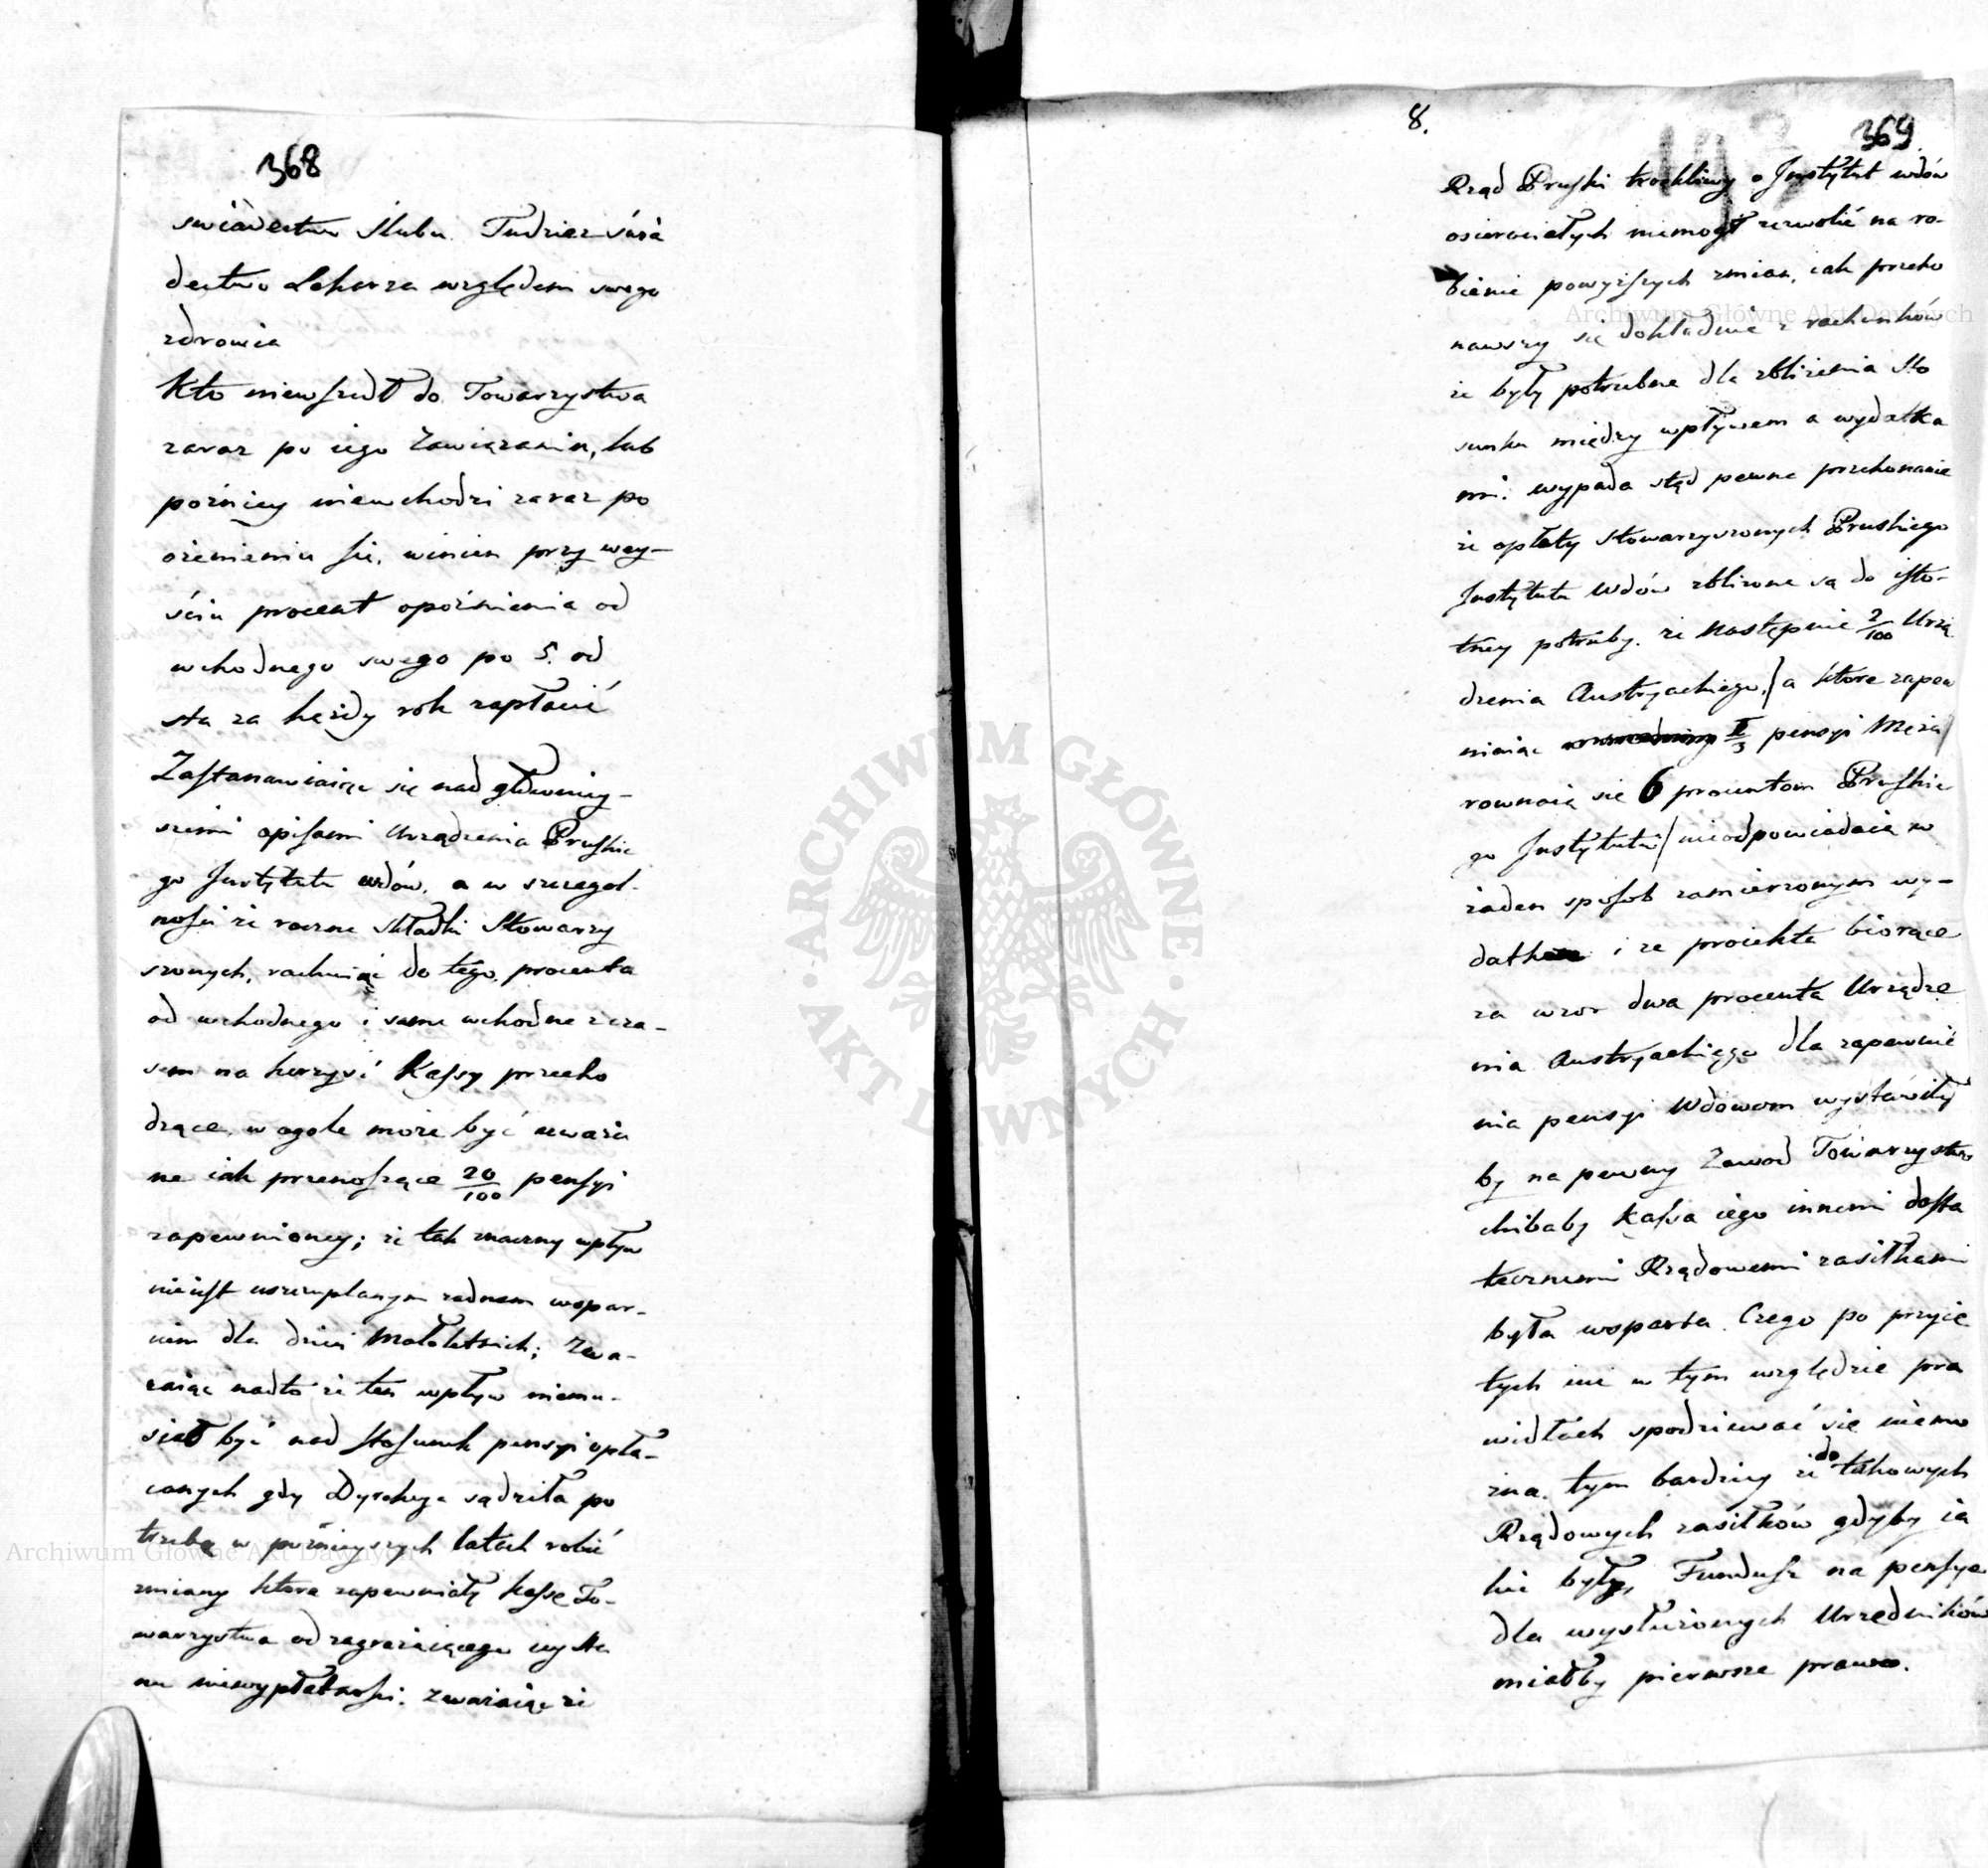 368
swiadectwo slubu. Tudzież swia
dectwo Lekarza względem swego
zdrowia
Kto niewszedł do Towarzystwa
zaraz po iego Zawiązaniu, lub
pożniey niewchodzi zaraz po
ożenieniu się, winien przy wey-
ściu procent opoźnienia od
wchodnego swego po 5. od
sta za każdy rok zapłacić
Zastanawiaiąc się nad główniey-
szemi opisami Urządzenia Pruskie
go Instytutu wdów, a w szczegol-
ności że roczne składki Stowarzy
szonych, rachuiąc do tego, procenta
od wchodnego i same wchodne z cza-
sem na korzyść Kassy przecho
dzące, w ogole może być uważa
ne iak przenoszące 20/100 pensyi
zapewnioney; że tak znaczny wpływ
nieiest uszczuplanym żadnem wspar-
ciem dla dzieci Małoletnich; Zwa-
żaiąc nadto że ten wpływ niemu-
siał być nad stosunek pensyi opła-
canych gdy Dyrekcya sądziła po
trzebę w poźnieyszych latach robić
zmiany które zapewniały kassę To-
warzystwa od zagrażaiącego iey sta
nu niewypłatności. zważaiąc że
8.
369
Rząd Pruski troskliwy o Instytut wdów
osierociałych niemogł zezwolić na ro-
bienie powyższych zmian, iak przeko
nawszy się dokładnie z rachunków
że były potrzebne dla zbliżenia sto
sunku między wpływem a wydatka
mi. wypada stąd pewne przekonanie
że opłaty stowarzyszonych Pruskiego
Instytutu Wdów zbliżone są do isto-
tney potrzeby. że następnie 2/100 Urzą
dzenia Austryackiego, / a które zapew
niaiąc 1/3 pensyi Męża /
rownaią się 6 procentom Pruskie
go Instytutu / nieodpowiadaią w
żaden sposob zamierzonym wy-
datkom i że proiekta biorące
za wzor dwa procenta Urządze
nia Austryackiego dla zapewnie
nia pensyi Wdowom wystawiły
by na pewny Zawod Towarzystwo
chibaby Kassa iego innemi dosta
tecznemi Rządowemi zasiłkami
była wsparta. Czego po przyię
tych iuż w tym względzie pra
widłach spodziewać się niemo
żna. tym bardziey że do takowych
Rządowych zasiłków gdyby ia
kie były, Fundusz na pensye
dla wysłużonych Urzędników
miałby pierwsze prawo.
Archiwum Główne Akt Dawnych
Archiwum Główne Akt Dawnych
ARCHIWUM GŁÓWNE AKT DAWNYCH